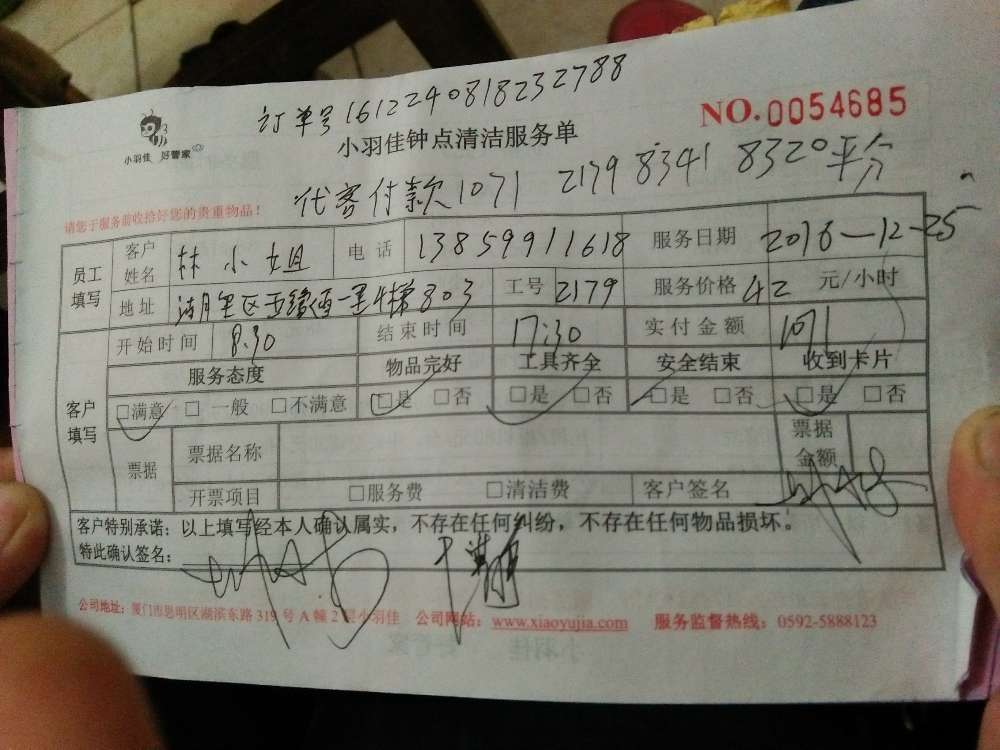 订单号1612240818232788
NO.0054685
小羽佳 好管家
小羽佳钟点清洁服务单
代客付款1071 2179 8341 8320平分
请您于服务前收拾好您的贵重物品!
员工填写 客户姓名 林小姐 电话 13859911618 服务日期 2016-12-25
地址 湖里区 一里 803 工号 2179 服务价格 42 元/小时
客户填写 开始时间 8:30 结束时间 17:30 实付金额 1071
服务态度 物品完好 工具齐全 安全结束 收到卡片
□满意 □一般 □不满意 □是 □否 □是 □否 □是 □否 □是 □否
票据 票据名称 票据金额
开票项目 □服务费 □清洁费 客户签名
客户特别承诺:以上填写经本人确认属实,不存在任何纠纷,不存在任何物品损坏。
特此确认签名:
公司地址:厦门市思明区湖滨东路319号A幢2层小羽佳 公司网站:www.xiaoyujia.com 服务监督热线:0592-5888123